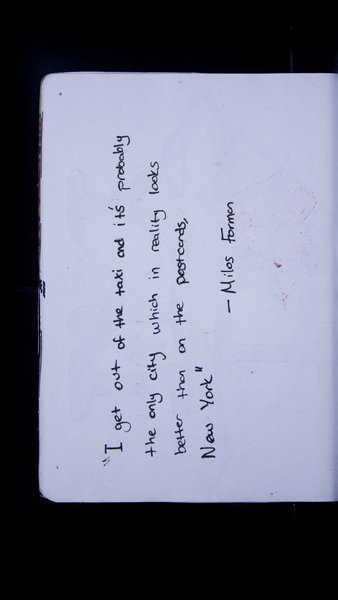 "I get out of the taxi and it's probably
the only city which in reality looks
better than on the postcards,
New York"
— Milos Forman